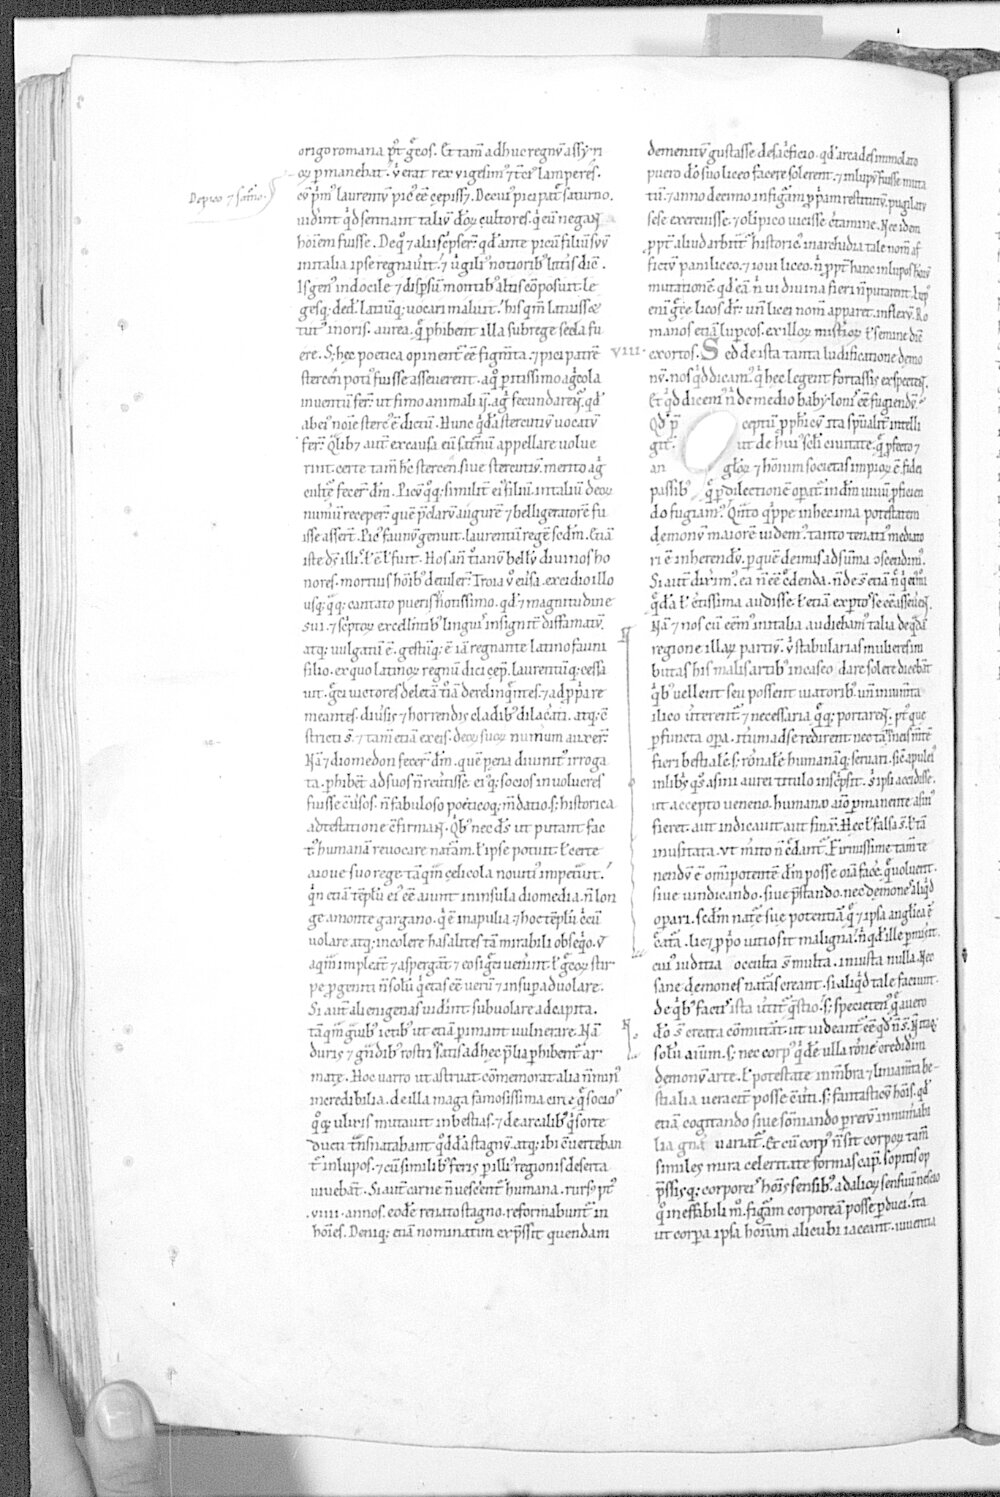 origo romana p̄t grecos. Et tam̄ adhuc regnū assyri
oꝝ p̄manebat. ubi erat rex vigesim' ⁊ t̄ci' lamperes.
De pico ⁊ saturno.
cū prim' laurentū pic' eē cepisset. Decui' pici patr̄ saturno.
uiderint qd̄ sentiant taliū deoꝝ cultores. qui eū negant
hoīem fuisse. De quo ⁊ alii sc̄pserunt. qd̄ ante picū filiū suū
in italia ipse regnauit. ⁊ uirgili' notiorib' litt̄is dic̄.
Is gen' indocile ⁊ dispsū montib' altis cōposuit. le
gesq; dedit. latiūq; uocari maluit. his qm̄ latuisset
tut' in oris. aurea. q̄ phibent illa sub rege secla fu
ere. S; hec poetica opinent̄ eē figm̄ta. ⁊ pici patrē
stercen poti' fuisse asseuerent. a quo peritissimo agricola
inuentū fert̄ ut fimo animaliū. agri fecundarent̄. qd̄
ab ei' noīe sterc' ē dictū. Hunc quidā stercutiū uocatū
ferunt. Qualib; autē ex causa eū saturnū appellare uolue
rint. certe tam̄ hc̄ stercen. siue stercutiū. merito agri
culturę fecert̄ dm̄. Picū quoq; similit̄ ei' filiū. in taliū deoꝝ
numerū recepert̄. quē p̄clarū augurē ⁊ belligeratorē fu
isse asserunt. Pic' faunū genuit. laurentiū regē scdm̄. Etiā
iste d̄s illis ł ē ł fuit. Hos an̄ troianū bellū diuinos ho
nores. mortuis hoīb' detulert̄. Troia ū euersa. excidio illo
usq; quaq; cantato puerisq; notissimo. qd̄ ⁊ magnitudine
sui. ⁊ scriptoꝝ excellētib' linguis insignit̄ diffamatū.
atq; uulgatū ē. gestūq; ē iā regnante latino fauni
filio. ex quo latinoꝝ regnū dici cepit. laurentūq; cessa
uit. greci uictores deletā troiā derelinquentes. ⁊ ad p̄pria re
meantes. diuersis ⁊ horrendis cladib' dilacerati. atq; cō
stricti s̄. ⁊ tam̄ etiā ex eis. deoꝝ suoꝝ numerū auxert̄.
Nā ⁊ diomeden fecert̄ dm̄. quē pena diuinit' irroga
ta. phibent ad suos n̄ reuertisse. ei'q; socios in uolucres
fuisse cūersos. n̄ fabuloso poeticoq; mendatio. s; historica
adtestatione cōfirmant. Quib' nec d̄s ut putant fac
t' humanā reuocare naturā. ł ipse potuit. ł certe
a ioue suo rege tāqm̄ celicola nouiti' impetuit.
quin etiā tēplū ei' eē aiunt in insula diomedia. n̄ lon
ge a monte gargano. qui ē in apulia. ⁊ hoc tēplū circū
uolare atq; incolere has alites tā mirabili obseqo. ut
aquā impleant̄ ⁊ aspergant̄. ⁊ eo si greci uenerint. ł grecoꝝ stir
pe p̄geniti n̄ solū quietas eē uerū ⁊ insup̄ aduolare.
Si autē alienigenas uiderint subuolare ad capita.
tāqm̄ grauib' ictib' ut etiā p̄imant uulnerare. Nā
duris ⁊ grandib' rostris satis ad hec p̄lia phibent̄ ar
matę. Hoc uarro ut astruat. cōmemorat alia n̄ min'
incredibilia. de illa maga famosissima circe. quę socio'
quoq; ulixis mutauit in bestias. ⁊ de arcadib' qui sorte
ducti transnatabant quoddā stagnū. atq; ibi cōuerteban
t' in lupos. ⁊ cū similib' feris p̄ illi' regionis deserta
uiuebant. Si autē carne n̄ uescerent̄ humana. rursus pt'
.viiii. annos. eodē renatato stagno. reformabunt̄ in
hoīes. Deniq; etiā nominatim exp̄ssit quendam
demenitū gustasse de sacrificio. qd̄ arcades immolato
puero dō suo liceo facere solerent. ⁊ in lupū fuisse muta
tū. ⁊ anno decimo in figurā p̄priam restitutū. pugilatū
sese exercuisse. ⁊ olimpico uicisse certamine. Nec idem
ppt̄ aliud arbitrat̄ historic' in archadia tale nom̄ af
fictū pani liceo. ⁊ ioui liceo. n̄ ppt̄ hanc in lupos hoīum
mutationē. qd̄ eā n̄ ui diuina fieri n̄ putarent. Lup'
enī grece licos dr̄. un̄ licei nom̄ apparet inflexū. Ro
manos etiā lupercos. ex illoꝝ misterioꝝ ł semine dic̄
VIII. exortos. Sed de ista tanta ludificatione demo
nū. nos quid dicam'. qui hec legent fortassis exspectent.
Et quid dicem' n̄ de medio babyloni' eē fugiendū.
Qd̄ p̄ceptū pp̄heticū ita spūalit̄ intelli
git̄. ut de hui' seculi ciuitate. quę profecto ⁊
an gloꝝ ⁊ hominum societas impioꝝ ē. fidei
passib' quę p dilectionē operat̄. in dm̄ uiuū p̄ficien
do fugiam'. Quanto quippe in hec ima potestatem
demonū maiorē uidem'. tanto tenati' mediato
ri ē inherendū. p quē de imis ad sūma ascendim'.
Si autē dixerim'. ea n̄ eē credenda. n̄ de s̄ etiā n̄ qui eiusmodi
quędā ł certissima audisse. ł etiā expertos se eē asseuerent.
Nā ⁊ nos cū eēm' in italia. audiebam' talia de quadā
regione illaꝝ partiū. ubi stabularias mulieres im
butas his malis artib' in caseo. dare solere dicebant
quib' uellent seu possent uiatorib'. un̄ in iumenta
ilico uerterent̄. ⁊ necessaria quęq; portarent. pt'que
p̄functa opera. iterum ad se redirent. nec tam̄ in eis mentē
fieri bestialē. s; rationalē humanāq; seruari. sic̄ apulei'
in libris quos asini aurei titulo inscripsit. sibi ipsi accidisse.
ut accepto ueneno. humano aīo permanente asin'
fieret. aut indicauit aut finxit. Hec ł falsa s̄. ł tā
inusitata. ut merito n̄ credant̄. Firmissime tam̄ te
nendū ē omipotentē dm̄ posse oīa facere. quę uoluerit.
siue uindicando. siue p̄stando. nec demones aliquid
operari. scdm̄ naturę suę potentiā. quia ⁊ ipsa anglica ē
creata. licet p̄prio uitio sit maligna. n̄ quod ille permiserit.
cui' iuditia occulta s̄ multa. iniusta nulla. Nec
sane demones naturas creant. si aliquid tale faciunt.
de quib' factis ista uertit̄ questio. s; specietenus quę a uero
dō s̄ creata cōmutant. ut uideant̄ eē qd̄ n̄ s̄. N̄ itaq;
solū aīum. s; nec corpus quidē ulla ratione crediderim
demonū arte. ł potestate in mēbra ⁊ liniamenta be-
stialia ueracit̄ posse conuerti. s; fantasticū hois. qd̄
etiā cogitando siue somniando p̄ rerū innumerabi
lia genera uariat̄. Et cū corpus n̄ sit corporū tam̄
similes mira celeritate formas capit. sopitis op
p̄ssisq; corporeis hois sensib'. ad alioꝝ sensum nescio
quo ineffabili mō. figurā corporeā posse p̄duci. ita
ut corpora ipsa hominum alicubi iaceant. uiuentia